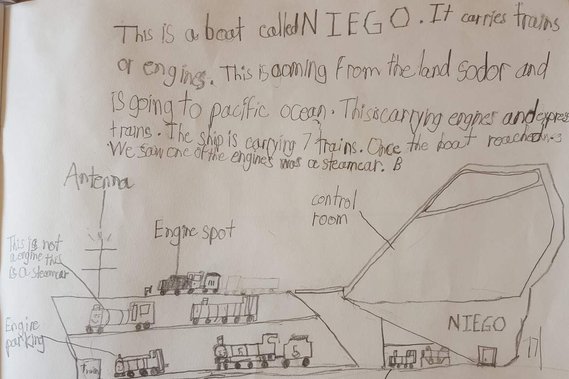 This is a boat called NIEGO. It carries trains
or engines. This is coming from the land sodor and
is going to pacific ocean. This is carrying engines and express
trains. The ship is carrying 7 trains. Once the boat reached
We saw one of the engines was a steamcar. B
Antenna
Engine spot
control
room
This is not
a engine this
is a steamcar
Engine
parking
NIEGO
5